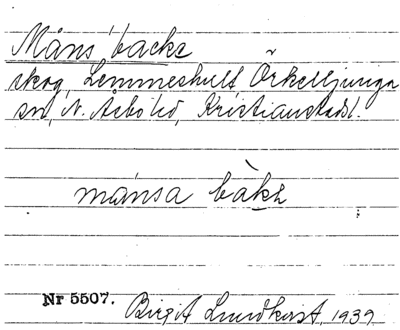 Måns' backe
skog, Lemmeshult, Örkelljunga
sn, N. Åsbo hd, Kristianstads l.
månsa bàkə
Nr 5507. Birgit Lundkvist, 1939